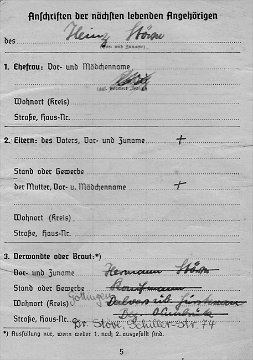 Anschriften der nächsten lebenden Angehörigen
des Heinz
(Vor- und Zuname)
1. Ehefrau: Vor- und Mädchenname
(ggf. Vermerk „ledig“)
Wohnort (Kreis)
Straße, Haus-Nr.
2. Eltern: des Vaters, Vor- und Zuname +
Stand oder Gewerbe
der Mutter, Vor- u. Mädchenname +
Wohnort (Kreis)
Straße, Haus-Nr.
3. Verwandte oder Braut:*)
Vor- und Zuname Hermann
Stand oder Gewerbe Kaufmann
Wohnort (Kreis) Göttingen
Straße, Haus-Nr.
Dr. Schiller-Str. 74
*) Ausfüllung nur, wenn weder 1. noch 2. ausgefüllt sind.
5